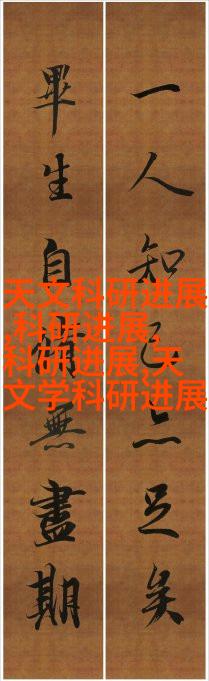 一人知己亦足矣
畢生自無盡期
天文科研进展
,科研进展,
科研进展,天
文学科研进展